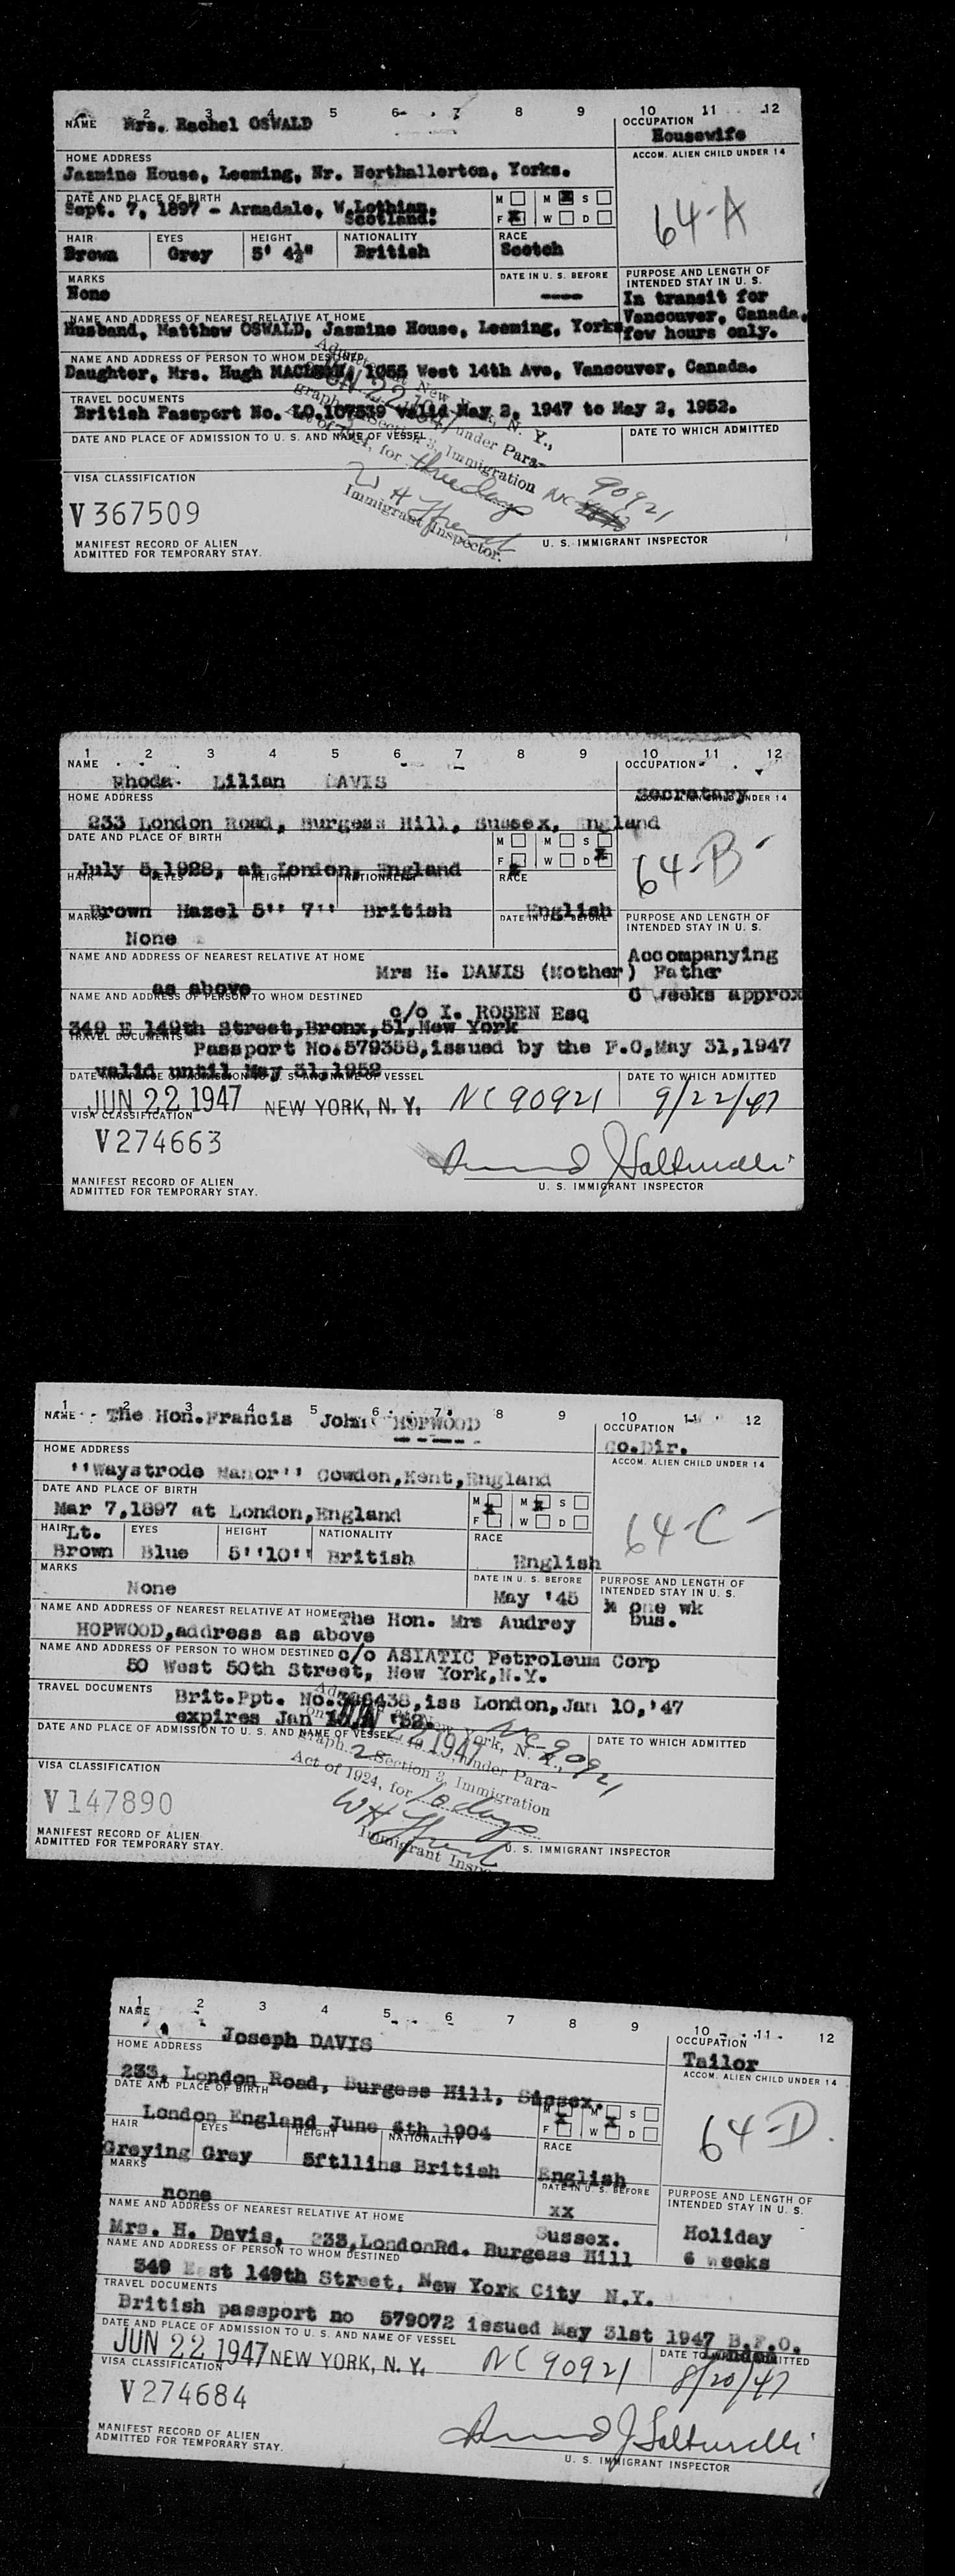 2 3 4 5 6 7 8 9 10 11 12
NAME Mrs. Rachel OSWALD
OCCUPATION
Housewife
HOME ADDRESS
ACCOM. ALIEN CHILD UNDER 14
Jasmine House, Leeming, Nr. Northallerton, Yorks.
64-A
DATE AND PLACE OF BIRTH
M M X S
Sept. 7, 1897 - Armadale, W.Lothian, Scotland.
F X W D
HAIR EYES HEIGHT NATIONALITY RACE
Brown Grey 5' 4½" British Scotch
MARKS DATE IN U. S. BEFORE
None ----
PURPOSE AND LENGTH OF
INTENDED STAY IN U. S.
In transit for
Vancouver, Canada,
few hours only.
NAME AND ADDRESS OF NEAREST RELATIVE AT HOME
Husband, Matthew OSWALD, Jasmine House, Leeming, Yorks
NAME AND ADDRESS OF PERSON TO WHOM DESTINED
Daughter, Mrs. Hugh 1055 West 14th Ave, Vancouver, Canada.
TRAVEL DOCUMENTS
British Passport No. LO.107539 valid May 2, 1947 to May 2, 1952.
DATE AND PLACE OF ADMISSION TO U. S. AND NAME OF VESSEL
DATE TO WHICH ADMITTED
New York, N. Y.,
under Para-
graph Section 3, Immigration
Act of 1924, for three days
NC 90921
W H
Immigrant Inspector.
VISA CLASSIFICATION
V 367509
MANIFEST RECORD OF ALIEN
ADMITTED FOR TEMPORARY STAY.
U. S. IMMIGRANT INSPECTOR
1 2 3 4 5 6 7 8 9 10 11 12
NAME
OCCUPATION
Rhoda Lilian DAVIS
HOME ADDRESS
Secretary
ACCOM. ALIEN CHILD UNDER 14
233 London Road, Burgess Hill, Sussex, England
DATE AND PLACE OF BIRTH
M M S X
F X W D
64-B
July 5,1928, at London, England
HAIR EYES HEIGHT NATIONALITY RACE
Brown Hazel 5'' 7'' British English
MARKS DATE IN U. S. BEFORE
None
PURPOSE AND LENGTH OF
INTENDED STAY IN U. S.
Accompanying
Father
6 Weeks approx
NAME AND ADDRESS OF NEAREST RELATIVE AT HOME
Mrs H. DAVIS (Mother)
as above
NAME AND ADDRESS OF PERSON TO WHOM DESTINED
c/o I. ROSEN Esq
349 E 149th Street,Bronx,51,New York
TRAVEL DOCUMENTS
Passport No.579358,issued by the F.O,May 31,1947
valid until May 31,1952
DATE AND PLACE OF ADMISSION TO U. S. AND NAME OF VESSEL
DATE TO WHICH ADMITTED
JUN 22 1947 NEW YORK, N. Y. NC 90921 9/22/47
VISA CLASSIFICATION
V274663
MANIFEST RECORD OF ALIEN
ADMITTED FOR TEMPORARY STAY.
U. S. IMMIGRANT INSPECTOR
1 2 3 4 5 6 7 8 9 10 11 12
NAME The Hon.Francis John HOPWOOD
OCCUPATION
Co.Dir.
HOME ADDRESS
ACCOM. ALIEN CHILD UNDER 14
''Waystrode Manor'' Cowden,Kent,England
DATE AND PLACE OF BIRTH
M X M X S
F W D
64-C
Mar 7,1897 at London,England
HAIR EYES HEIGHT NATIONALITY RACE
Lt. Brown Blue 5''10'' British English
MARKS DATE IN U. S. BEFORE
None May '45
PURPOSE AND LENGTH OF
INTENDED STAY IN U. S.
one wk
bus.
NAME AND ADDRESS OF NEAREST RELATIVE AT HOME
The Hon. Mrs Audrey
HOPWOOD,address as above
NAME AND ADDRESS OF PERSON TO WHOM DESTINED
c/o ASIATIC Petroleum Corp
50 West 50th Street, New York,N.Y.
TRAVEL DOCUMENTS
Brit.Ppt. iss London,Jan 10,'47
expires Jan
DATE AND PLACE OF ADMISSION TO U. S. AND NAME OF VESSEL
DATE TO WHICH ADMITTED
New York, N. Y.,
1947 under Para-
graph 2 Section 3, Immigration
Act of 1924, for 10 days
NC-90921
WH
Immigrant
VISA CLASSIFICATION
V147890
MANIFEST RECORD OF ALIEN
ADMITTED FOR TEMPORARY STAY.
U. S. IMMIGRANT INSPECTOR
1 2 3 4 5 6 7 8 9 10 11 12
NAME
OCCUPATION
Joseph DAVIS
Tailor
HOME ADDRESS
ACCOM. ALIEN CHILD UNDER 14
233, London Road, Burgess Hill, Sussex.
DATE AND PLACE OF BIRTH
M X M X S
F W D
64-D.
London England June 4th 1904
HAIR EYES HEIGHT NATIONALITY RACE
Greying Grey 5ft11ins British English
MARKS DATE IN U. S. BEFORE
none XX
PURPOSE AND LENGTH OF
INTENDED STAY IN U. S.
Holiday
6 weeks
NAME AND ADDRESS OF NEAREST RELATIVE AT HOME
Sussex.
Mrs. H. Davis, 233,LondonRd. Burgess Hill
NAME AND ADDRESS OF PERSON TO WHOM DESTINED
349 East 149th Street, New York City N.Y.
TRAVEL DOCUMENTS
British passport no 579072 issued May 31st 1947 B.F.O.
London
DATE AND PLACE OF ADMISSION TO U. S. AND NAME OF VESSEL
DATE TO WHICH ADMITTED
JUN 22 1947 NEW YORK, N. Y. NC 90921 8/20/47
VISA CLASSIFICATION
V274684
MANIFEST RECORD OF ALIEN
ADMITTED FOR TEMPORARY STAY.
U. S. IMMIGRANT INSPECTOR